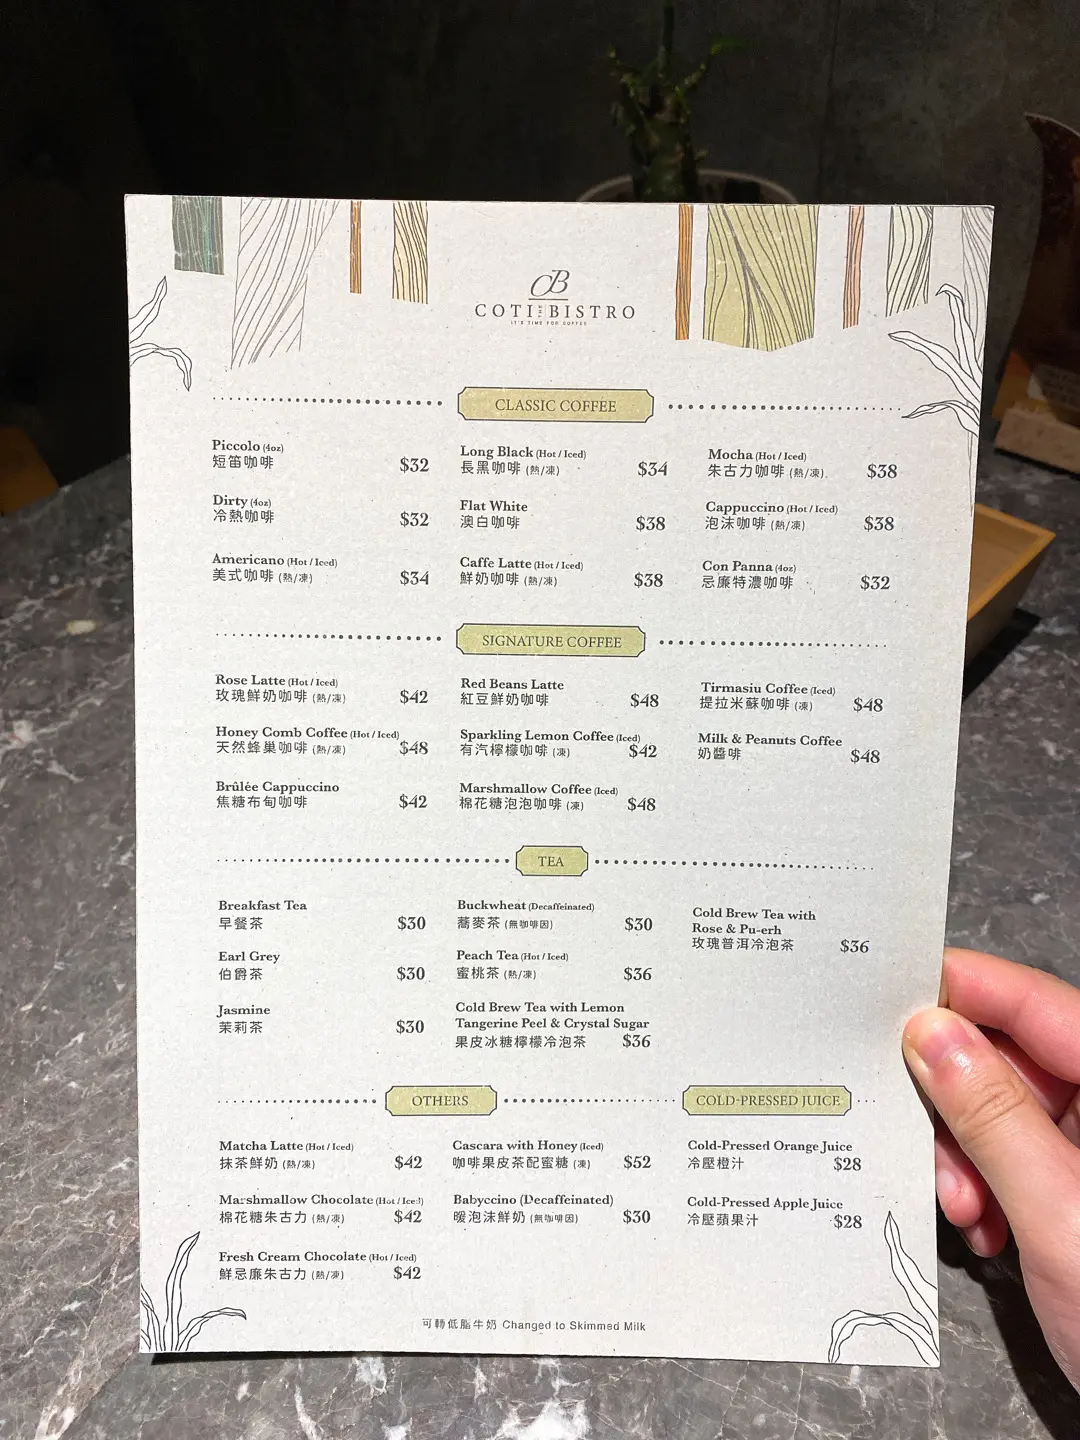 CB
COTI THE BISTRO
IT'S TIME FOR COFFEE
CLASSIC COFFEE
Piccolo (4oz)
短笛咖啡 $32
Long Black (Hot / Iced)
長黑咖啡 (熱/凍) $34
Mocha (Hot / Iced)
朱古力咖啡 (熱/凍). $38
Dirty (4oz)
冷熱咖啡 $32
Flat White
澳白咖啡 $38
Cappuccino (Hot / Iced)
泡沫咖啡 (熱/凍) $38
Americano (Hot / Iced)
美式咖啡 (熱/凍) $34
Caffe Latte (Hot / Iced)
鮮奶咖啡 (熱/凍) $38
Con Panna (4oz)
忌廉特濃咖啡 $32
SIGNATURE COFFEE
Rose Latte (Hot / Iced)
玫瑰鮮奶咖啡 (熱/凍) $42
Red Beans Latte
紅豆鮮奶咖啡 $48
Tirmasiu Coffee (Iced)
提拉米蘇咖啡 (凍) $48
Honey Comb Coffee (Hot / Iced)
天然蜂巢咖啡 (熱/凍) $48
Sparkling Lemon Coffee (Iced)
有汽檸檬咖啡 (凍) $42
Milk & Peanuts Coffee
奶醬啡 $48
Brûlée Cappuccino
焦糖布甸咖啡 $42
Marshmallow Coffee (Iced)
棉花糖泡泡咖啡 (凍) $48
TEA
Breakfast Tea
早餐茶 $30
Buckwheat (Decaffeinated)
蕎麥茶 (無咖啡因) $30
Cold Brew Tea with
Rose & Pu-erh
玫瑰普洱冷泡茶 $36
Earl Grey
伯爵茶 $30
Peach Tea (Hot / Iced)
蜜桃茶 (熱/凍) $36
Jasmine
茉莉茶 $30
Cold Brew Tea with Lemon
Tangerine Peel & Crystal Sugar
果皮冰糖檸檬冷泡茶 $36
OTHERS
Matcha Latte (Hot / Iced)
抹茶鮮奶 (熱/凍) $42
Cascara with Honey (Iced)
咖啡果皮茶配蜜糖 (凍) $52
Marshmallow Chocolate (Hot / Iced)
棉花糖朱古力 (熱/凍) $42
Babyccino (Decaffeinated)
暖泡沫鮮奶 (無咖啡因) $30
Fresh Cream Chocolate (Hot / Iced)
鮮忌廉朱古力 (熱/凍) $42
COLD-PRESSED JUICE
Cold-Pressed Orange Juice
冷壓橙汁 $28
Cold-Pressed Apple Juice
冷壓蘋果汁 $28
可轉低脂牛奶 Changed to Skimmed Milk